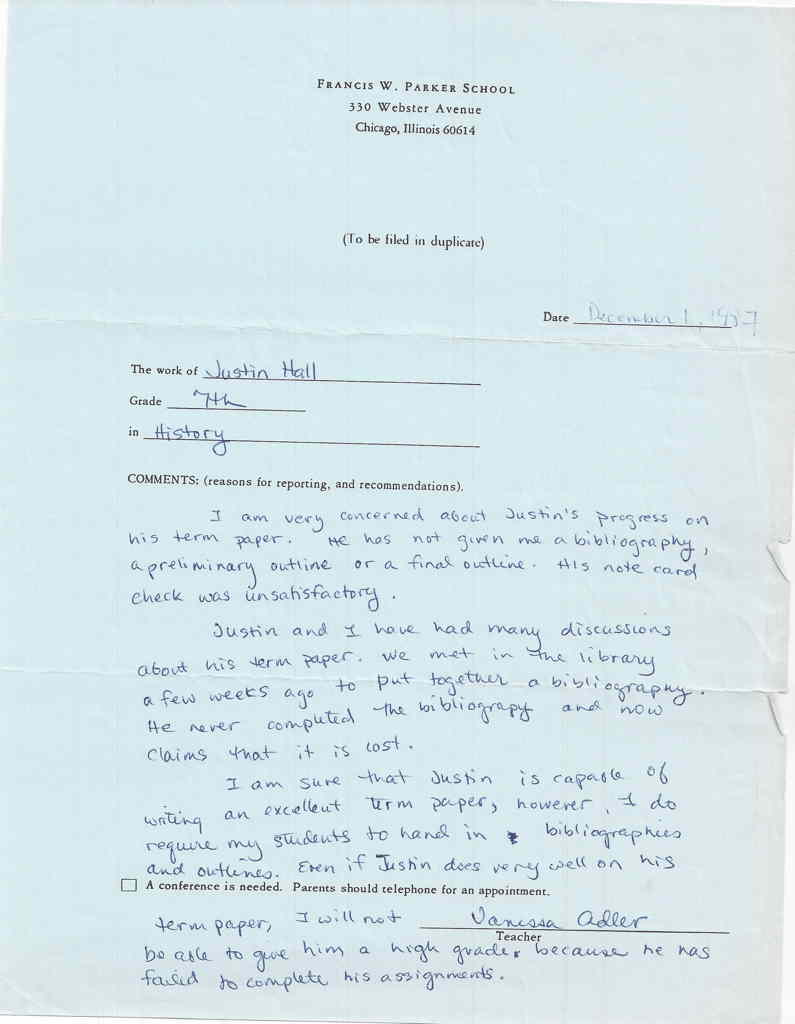 FRANCIS W. PARKER SCHOOL
330 Webster Avenue
Chicago, Illinois 60614
(To be filed in duplicate)
Date December 1, 1987
The work of Justin Hall
Grade 7th
in History
COMMENTS: (reasons for reporting, and recommendations).
I am very concerned about Justin's progress on
his term paper. He has not given me a bibliography,
a preliminary outline or a final outline. His note card
check was unsatisfactory.
Justin and I have had many discussions
about his term paper. We met in the library
a few weeks ago to put together a bibliography.
He never completed the bibliograpy and now
claims that it is lost.
I am sure that Justin is capable of
writing an excellent term paper, however, I do
require my students to hand in bibliographies
and outlines. Even if Justin does very well on his
A conference is needed. Parents should telephone for an appointment.
term paper, I will not Vanessa Adler
Teacher
be able to give him a high grade, because he has
failed to complete his assignments.